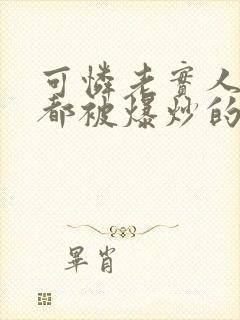 可憐老實人
都被爆炒的
畢肖